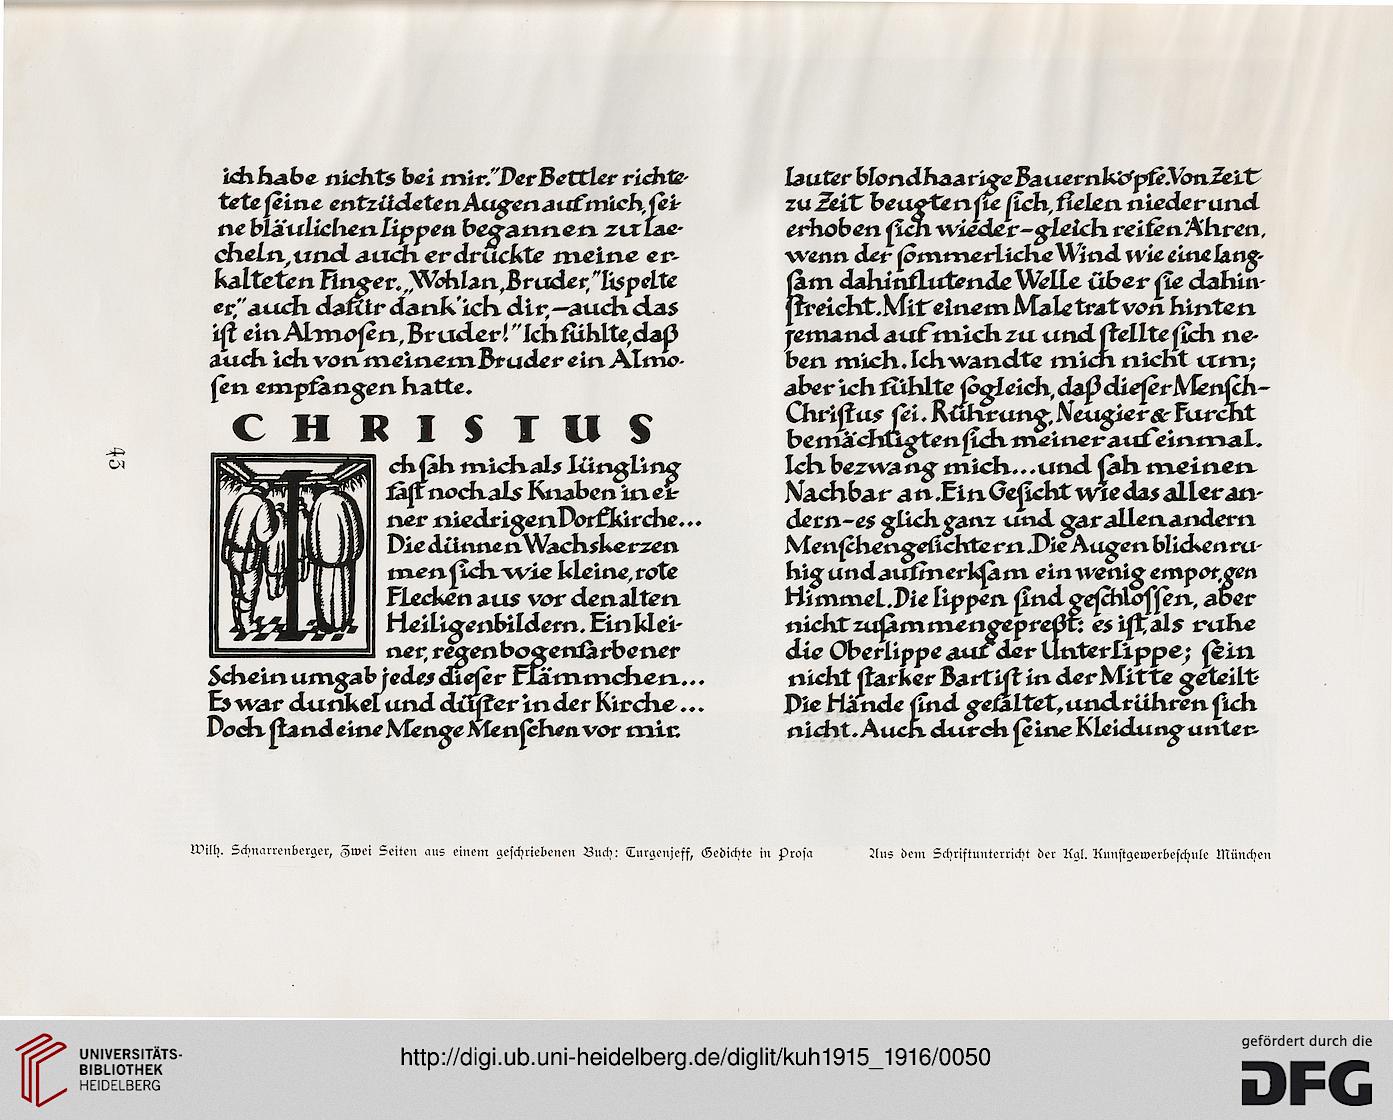 ich habe nichts bei mir.“ Der Bettler richte-
tete seine entzüdeten Augen auf mich, sei-
ne bläulichen Lippen begannen zu lae-
cheln, und auch er drückte meine er-
kalteten Finger. „Wohlan, Bruder,“ lispelte
er, „auch dafür dank' ich dir, – auch das
ist ein Almosen, Bruder!“ Ich fühlte, daß
auch ich von meinem Bruder ein Almo-
sen empfangen hatte.
CHRISTUS
Ich sah mich als Jüngling
fast noch als Knaben in ei-
ner niedrigen Dorfkirche...
Die dünnen Wachskerzen
men sich wie kleine, rote
Flecken aus vor den alten
Heiligenbildern. Ein klei-
ner, regenbogenfarbener
Schein umgab jedes dieser Flämmchen...
Es war dunkel und düster in der Kirche...
Doch stand eine Menge Menschen vor mir.
lauter blondhaarige Bauernköpfe. Von Zeit
zu Zeit beugten sie sich, fielen nieder und
erhoben sich wieder – gleich reifen Ähren,
wenn der sommerliche Wind wie eine lang-
sam dahinflutende Welle über sie dahin-
streicht. Mit einem Male trat von hinten
jemand auf mich zu und stellte sich ne-
ben mich. Ich wandte mich nicht um;
aber ich fühlte sogleich, daß dieser Mensch –
Christus sei. Rührung, Neugier & Furcht
bemächtigten sich meiner auf einmal.
Ich bezwang mich... und sah meinen
Nachbar an. Ein Gesicht wie das aller an-
dern – es glich ganz und gar allen andern
Menschengesichtern. Die Augen blicken ru-
hig und aufmerksam ein wenig empor, gen
Himmel. Die Lippen sind geschlossen, aber
nicht zusammengepreßt: es ist, als ruhe
die Oberlippe auf der Unterlippe; sein
nicht starker Bart ist in der Mitte geteilt.
Die Hände sind gefaltet, und rühren sich
nicht. Auch durch seine Kleidung unter-
43
Wilh. Schnarrenberger, Zwei Seiten aus einem geschriebenen Buch: Turgenjeff, Gedichte in Prosa
Aus dem Schriftunterricht der Kgl. Kunstgewerbeschule München
UNIVERSITÄTS-
BIBLIOTHEK
HEIDELBERG
http://digi.ub.uni-heidelberg.de/diglit/kuh1915_1916/0050
gefördert durch die
DFG